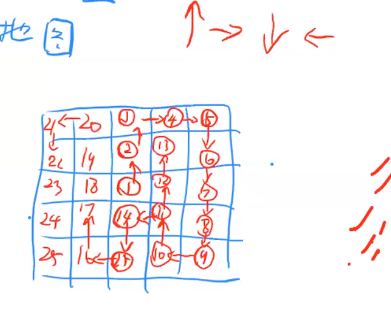 地图
↑ → ↓ ←
21 ← 20 ③ → ④ → ⑤
22 19 ② ⑬ ⑥
23 18 ① ⑫ ⑦
24 17 ⑭ ⑪ ⑧
25 16 ⑮ ⑩ ⑨